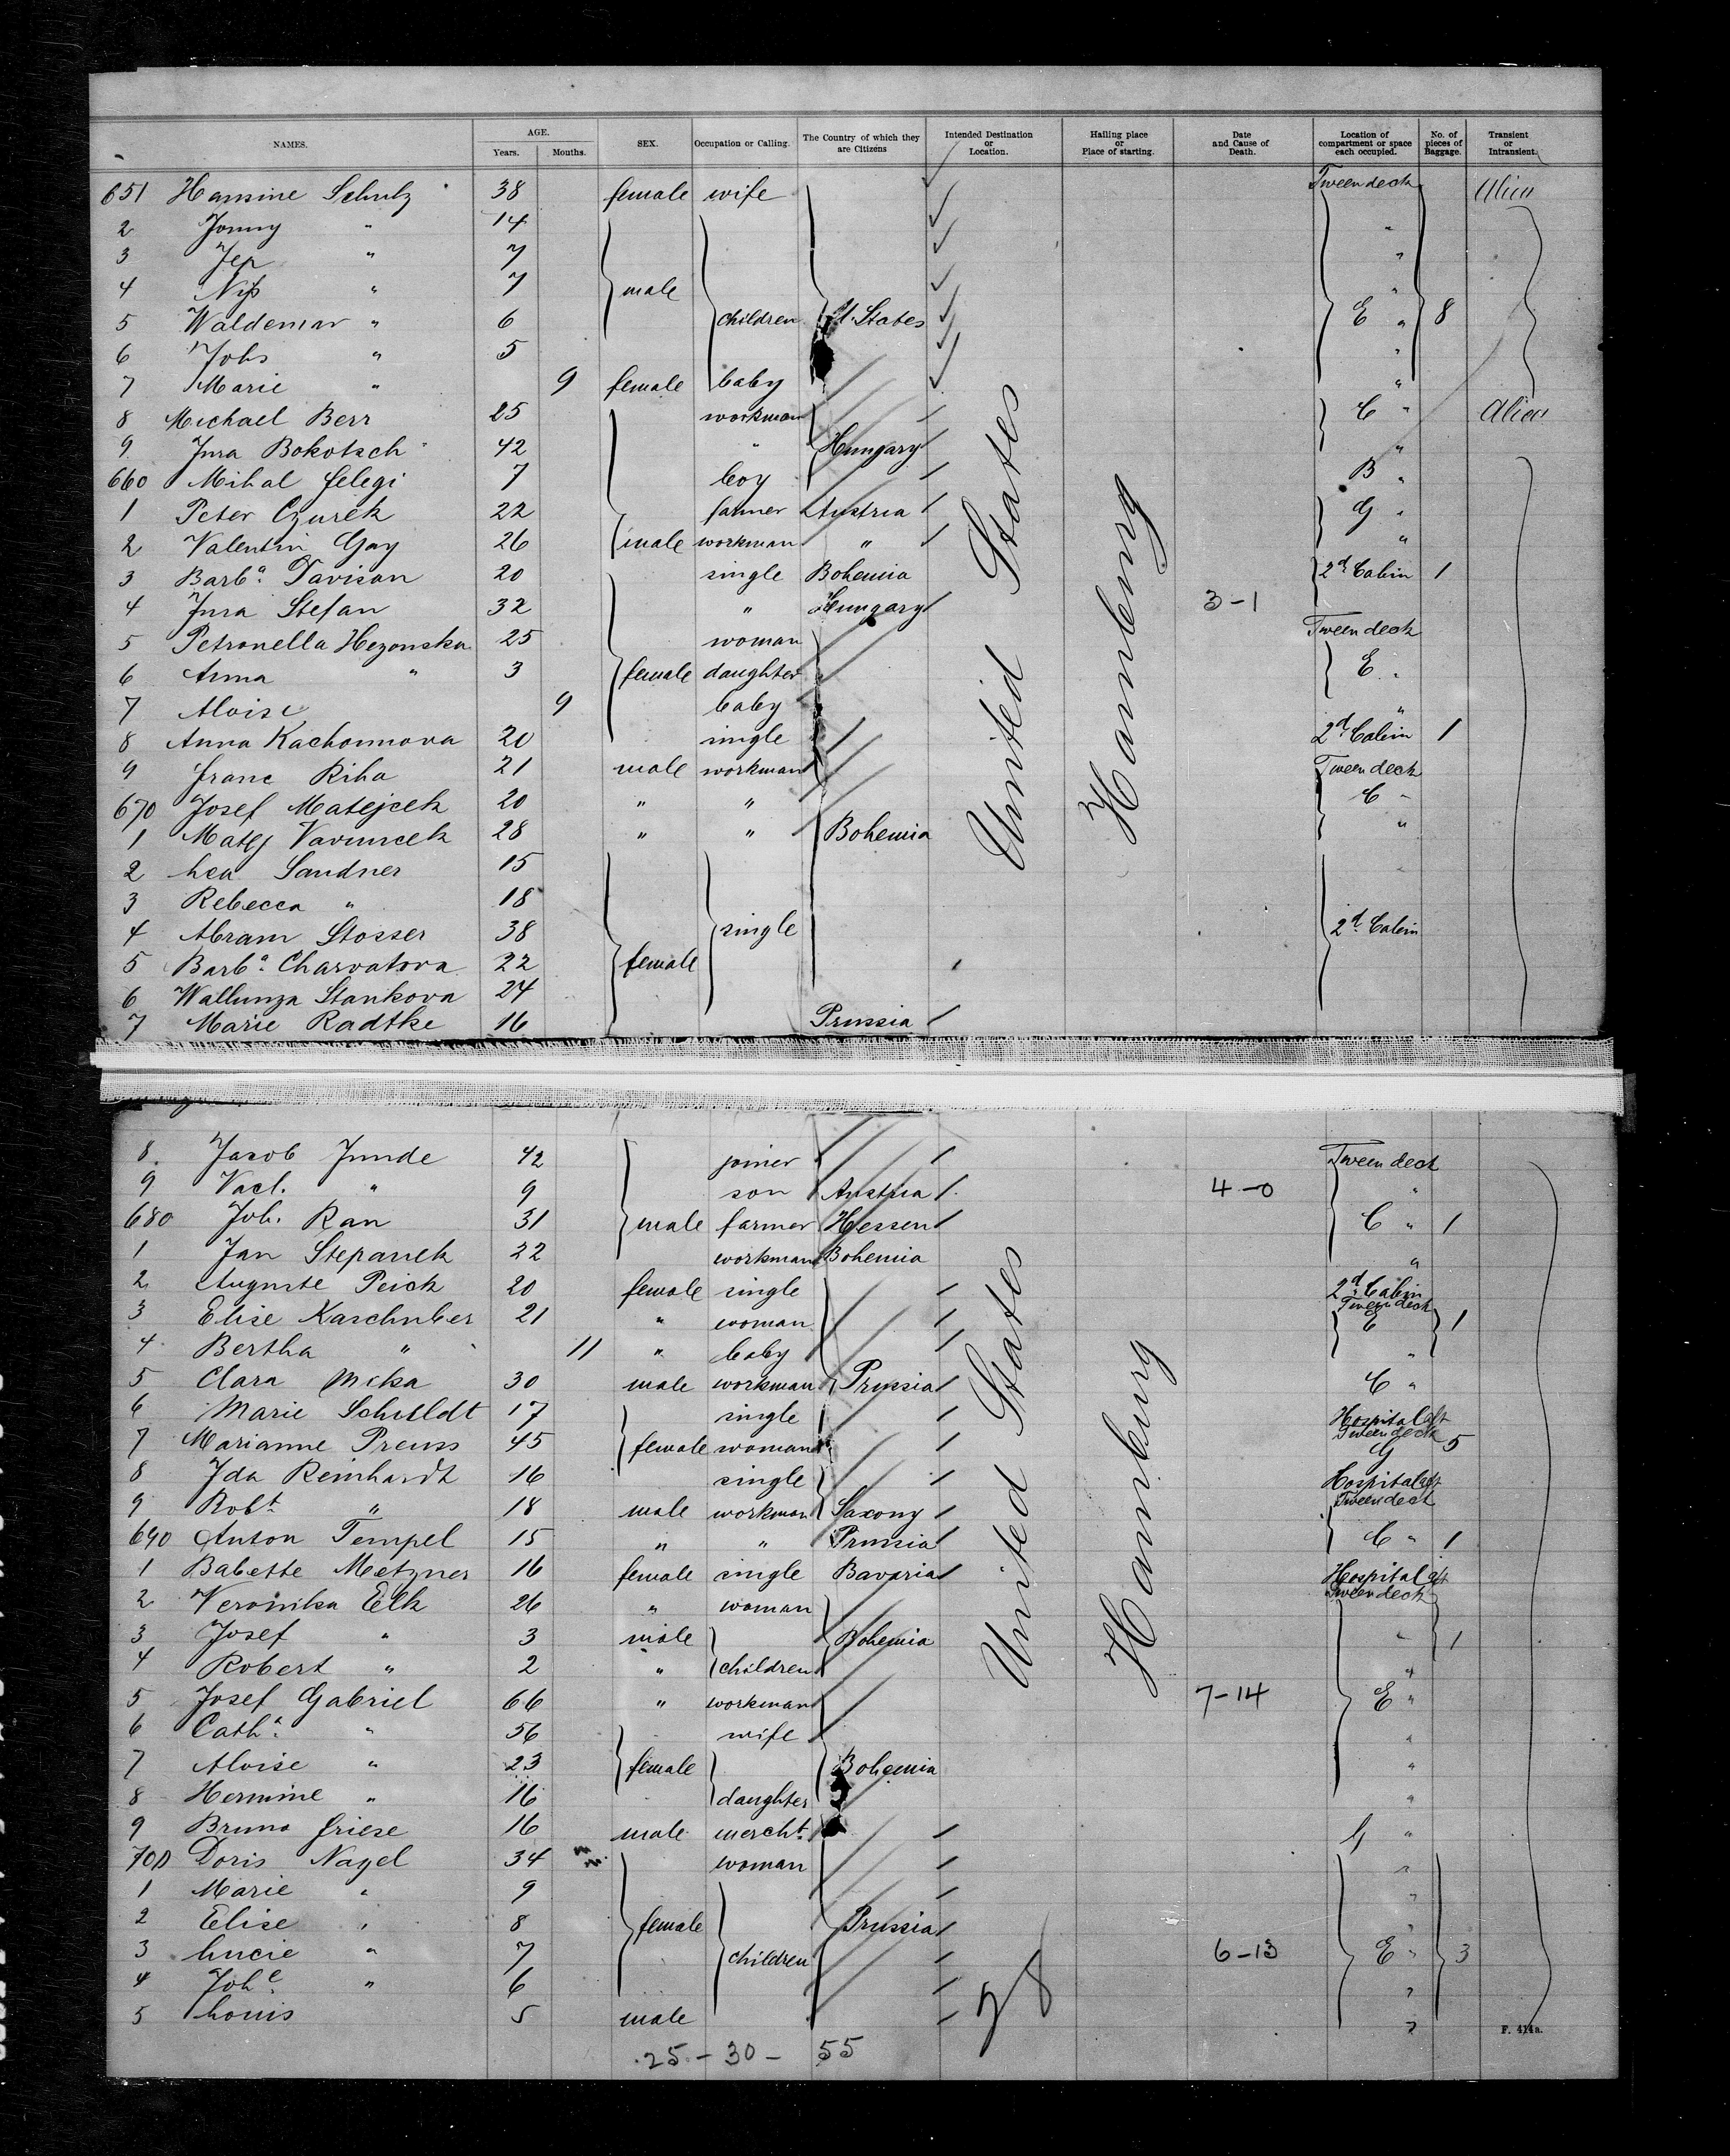 NAMES. AGE. Years. Months. SEX. Occupation or Calling. The Country of which they are Citizens Intended Destination or Location. Hailing place or Place of starting. Date and Cause of Death. Location of compartment or space each occupied. No. of pieces of Baggage. Transient or Intransient.
651 Hansine Schulz 38 female wife Tween deck
2 Jonny " 14 "
3 Jep " 7 "
4 Niss " 7 male "
5 Waldemar " 6 children U. States E " 8
6 Johs " 5 "
7 Marie " 9 female baby "
8 Michael Berr 25 workman C "
9 Jura Bokotsch 42 " Hungary "
660 Mihal Felegi 7 boy B "
1 Peter Czurek 22 farmer Austria G "
2 Valentin Gay 26 male workman " "
3 Barbª Davison 20 single Bohemia 2d Cabin 1
4 Jura Stefan 32 " Hungary 3-1
Tween deck
5 Petronella Hezonska 25 woman
6 Anna " 3 female daughter E "
7 Aloise 9 baby "
8 Anna Kachonnova 20 single 2d Cabin 1
9 Franc Riha 21 male workman Tween deck
670 Josef Matejcek 20 " " C "
1 Matej Vavruncek 28 " " Bohemia "
2 Lea Sandner 15
3 Rebecca " 18
4 Abram Stosser 38 single 2d Cabin
5 Barbª Charvatova 22 female
6 Wallunza Stankova 24
7 Marie Radtke 16 Prussia
United States
Hamburg
8 Jacob Junde 42 joiner Tween deck
9 Vacl. " 9 son Austria 4-0 "
680 Joh. Ran 31 male farmer Hessen C " 1
1 Jan Stepanek 22 workman Bohemia "
2 Auguste Peick 20 female single 2d Cabin
Tween deck
3 Elise Kaschuber 21 " woman E 1
4 Bertha " 11 " baby "
5 Clara Micka 30 male workman Prussia C "
6 Marie Schuldt 17 single Hospital aft
Tween deck
7 Marianne Preuss 45 female woman G 5
8 Ida Reinhardt 16 single Hospital aft
9 Robt " 18 male workman Saxony Tween deck
690 Anton Tempel 15 " " Prussia C " 1
1 Babette Metzner 16 female single Bavaria Hospital aft
Tween deck
2 Veronika Elk 26 " woman
3 Josef " 3 male Bohemia " 1
4 Robert " 2 " children "
5 Josef Gabriel 66 " workman 7-14 E "
6 Cathª " 56 wife "
7 Aloise " 23 female Bohemia "
8 Hermine " 16 daughter "
9 Bruno Friese 16 male mercht. G "
700 Doris Nagel 34 woman "
1 Marie " 9 "
2 Elise " 8 female Prussia "
3 Lucie " 7 children 6-13 E " 3
4 Johe " 6 "
5 Louis 5 male "
United States
Hamburg
25 - 30 - 55
F. 414a.